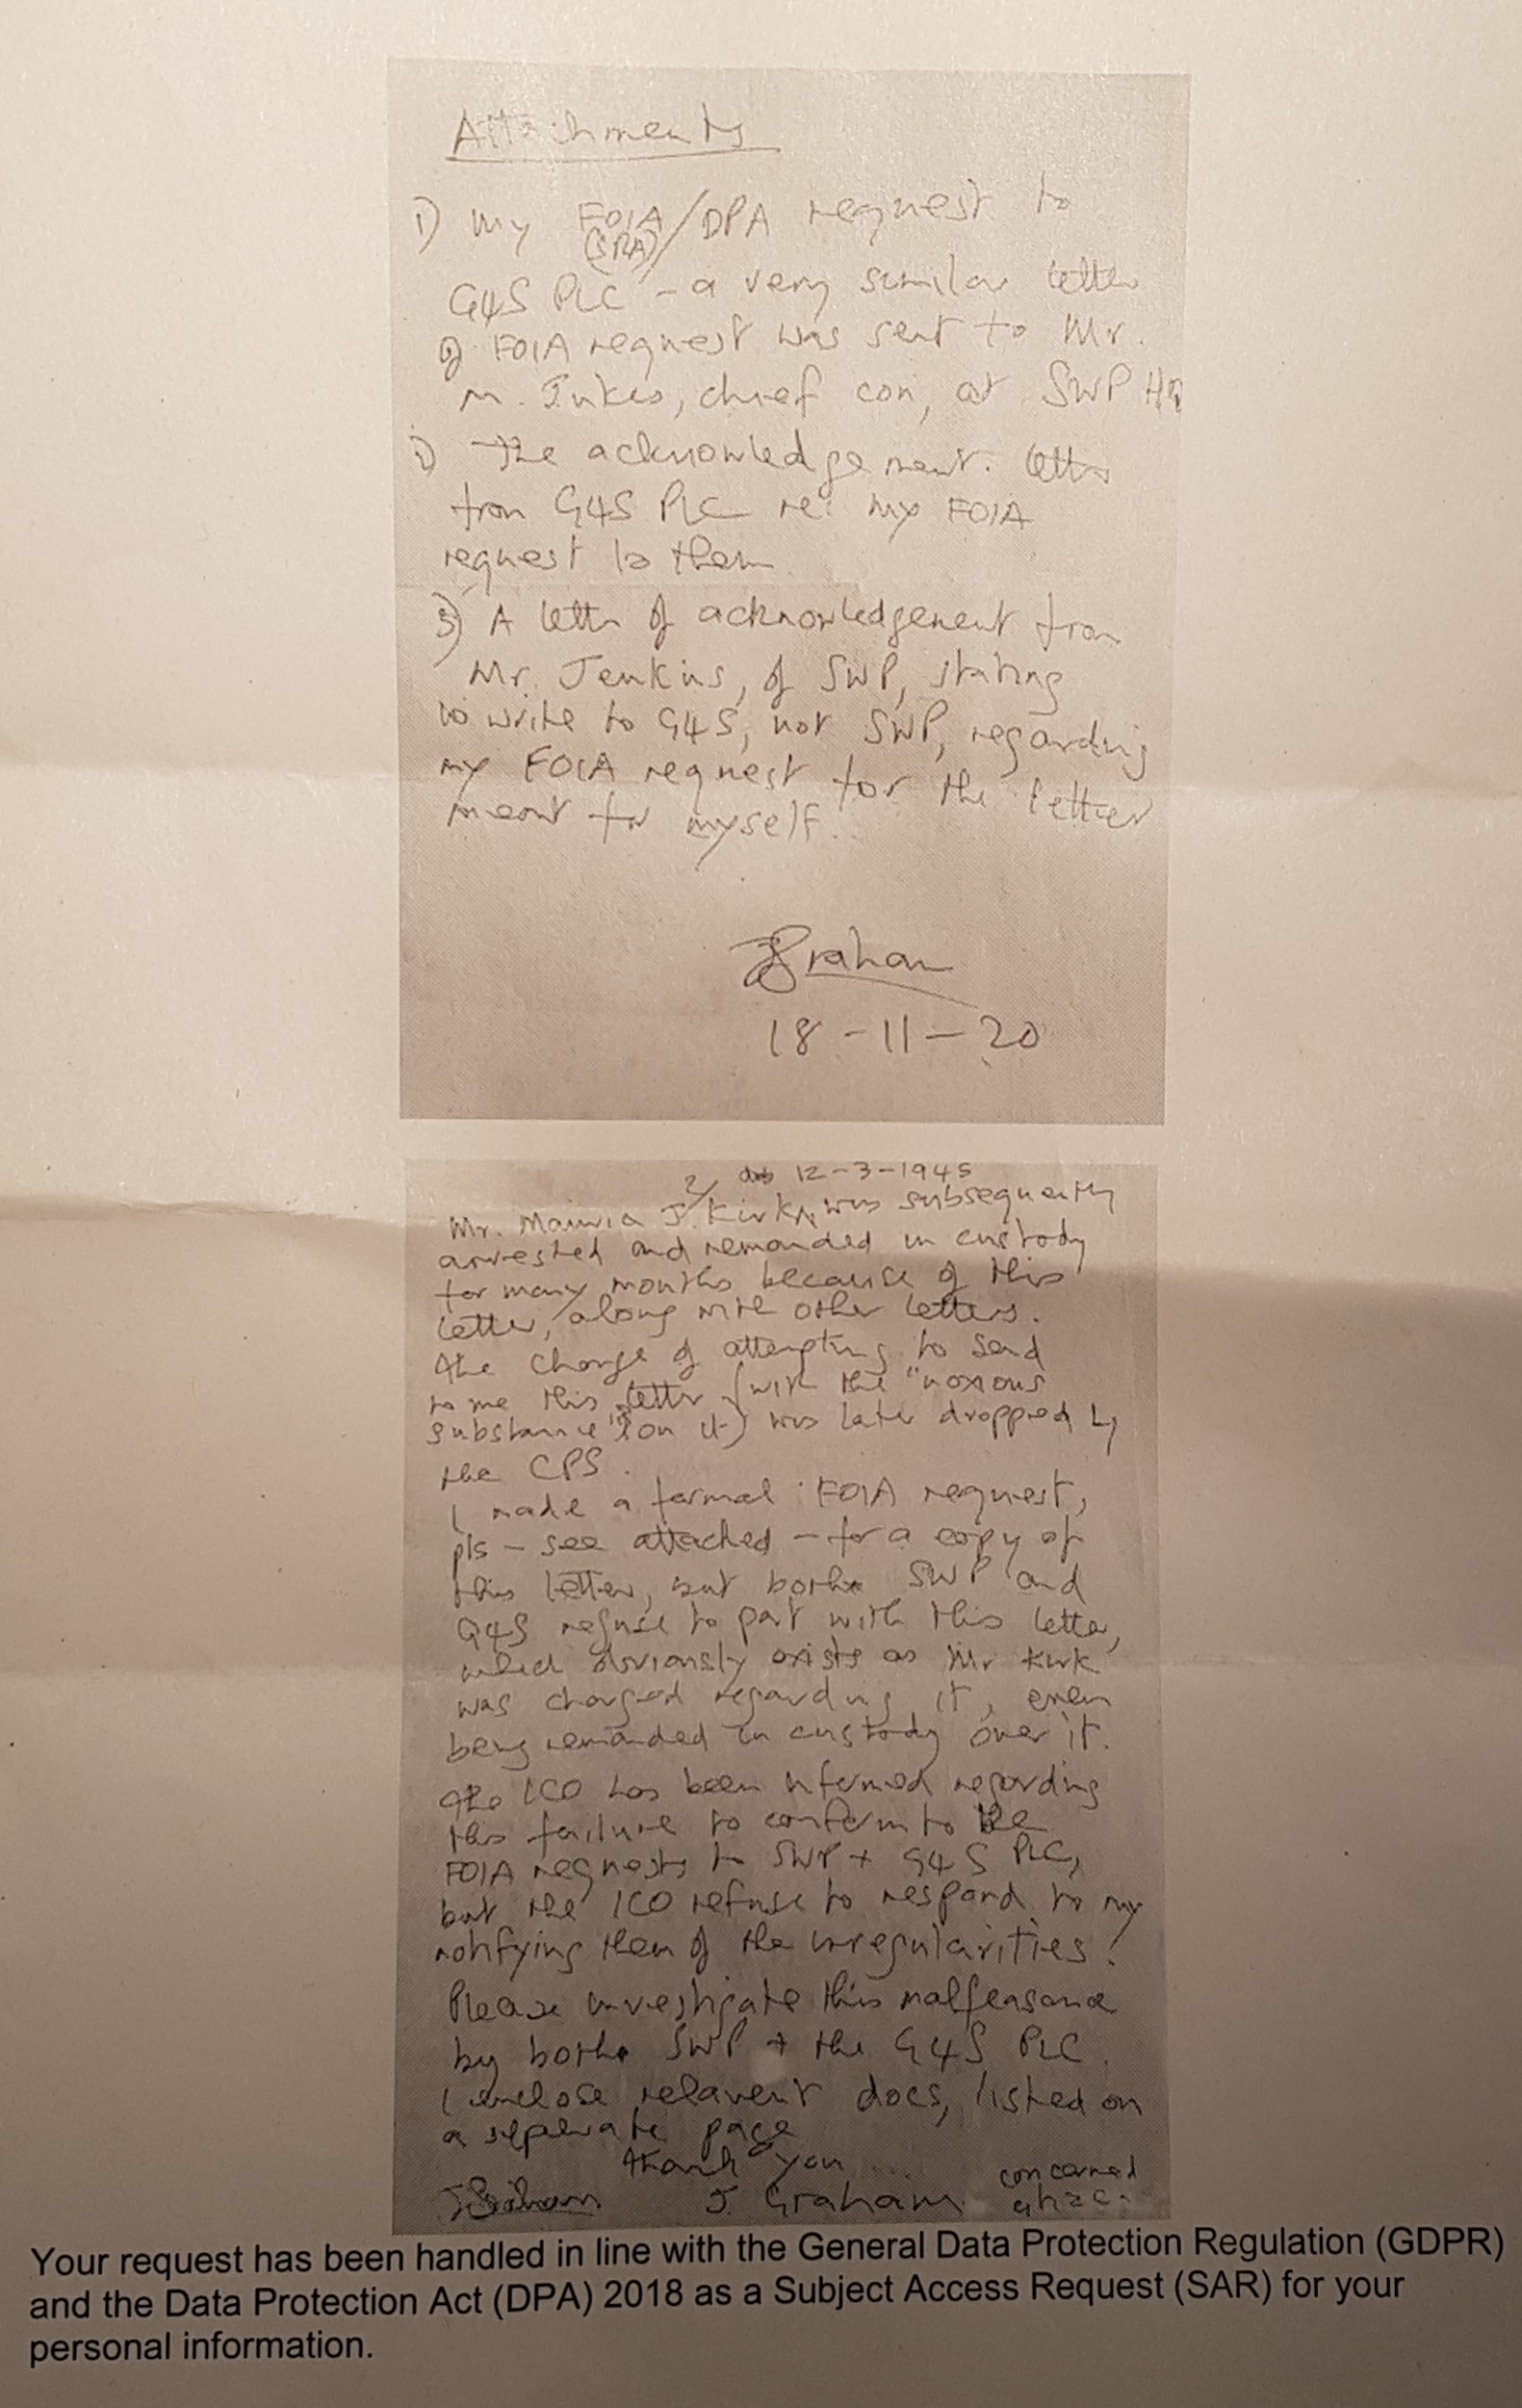 Attachments
1) My FOIA/DPA request to
(SRA)
G4S PLC - a very similar letter
of FOIA request was sent to Mr.
M. Jukes, chief con, at SWP HQ
2) The acknowledgement. letter
from G4S PLC re: my FOIA
request to them
3) A letter of acknowledgement from
Mr. Jenkins, of SWP, stating
to write to G4S, not SWP, regarding
my FOIA request for the letter
meant for myself.
JGraham
18-11-20
2/ dob 12-3-1945
Mr. Maurice J. Kirk, was subsequently
arrested and remanded in custody
for many months because of this
letter, along with other letters.
The charge of attempting to send
to me this letter (with the "noxious
substance" on it) was later dropped by
the CPS.
I made a formal FOIA request,
pls - see attached - for a copy of
this letter, but both SWP and
G4S refuse to part with this letter,
which obviously exists as Mr Kirk
was charged regarding it, even
being remanded in custody over it.
The ICO has been informed regarding
this failure to conform to the
FOIA requests to SWP + G4S PLC,
but the ICO refuse to respond to my
notifying them of the irregularities!
Please investigate this malfeasance
by both SWP + the G4S PLC.
I enclose relavent docs, listed on
a seperate page
Thank you ... concerned
JGraham J. Graham
Your request has been handled in line with the General Data Protection Regulation (GDPR)
and the Data Protection Act (DPA) 2018 as a Subject Access Request (SAR) for your
personal information.